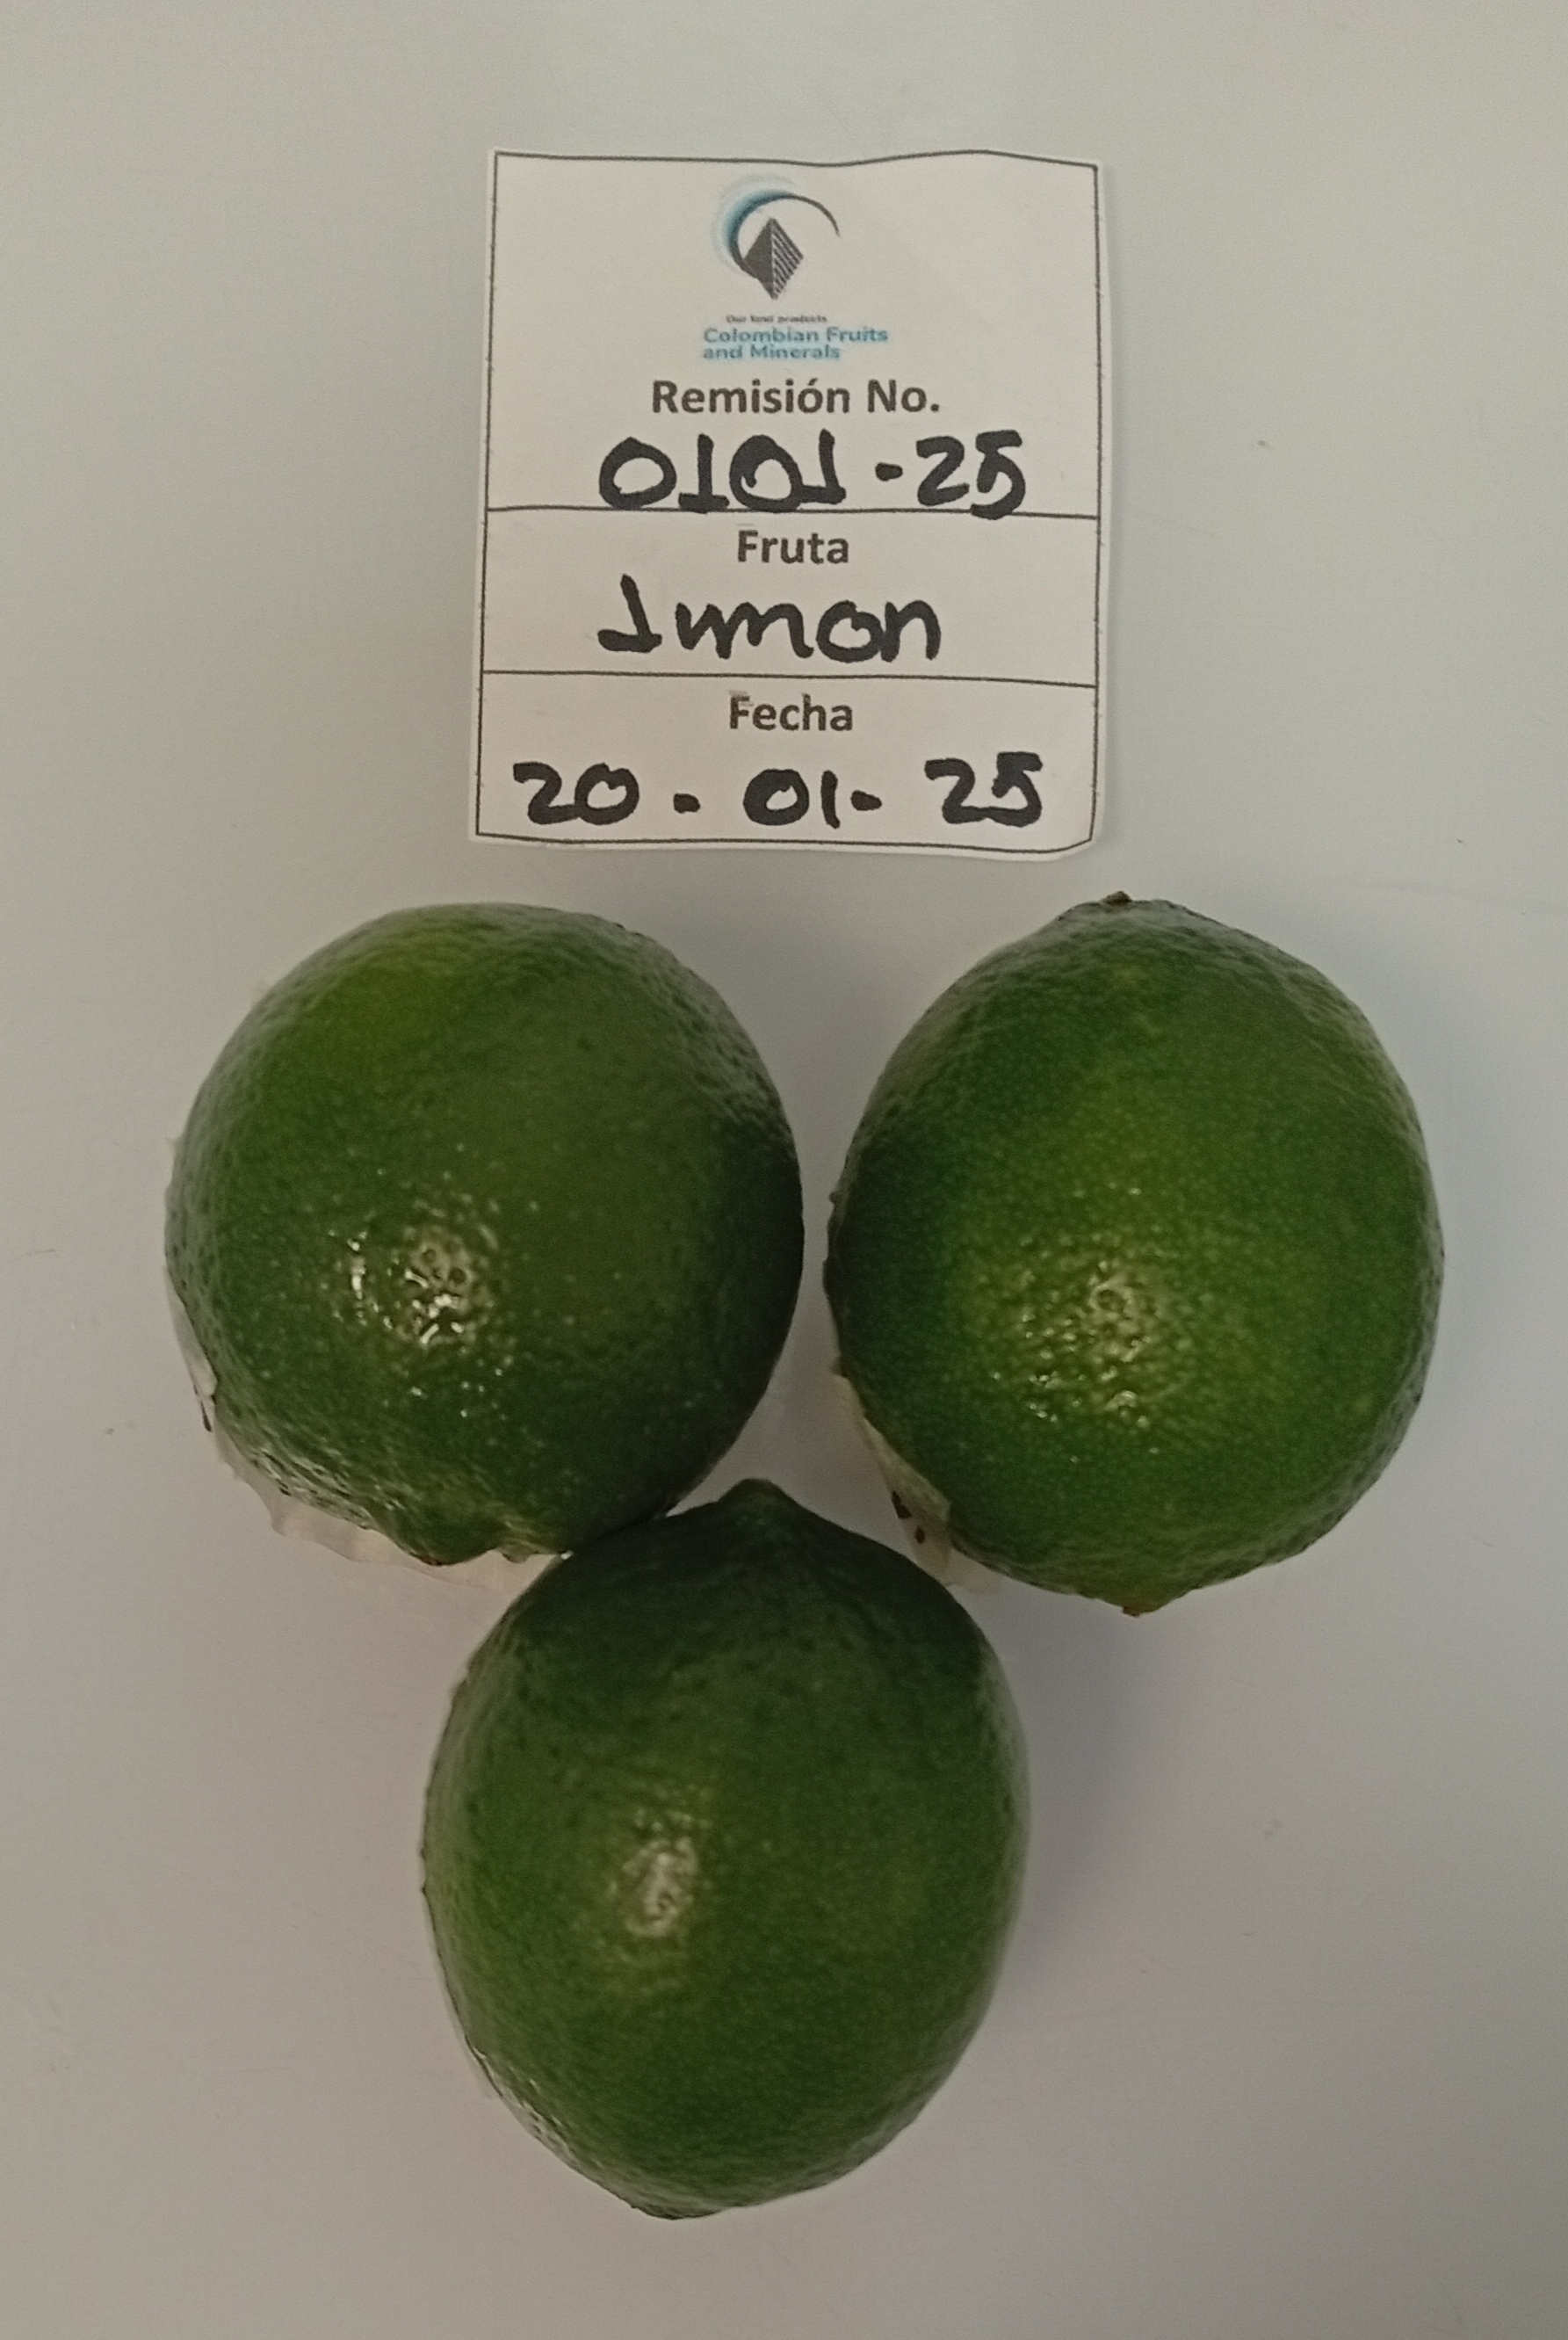 Our land products
Colombian Fruits
and Minerals
Remisión No.
0101-25
Fruta
Limon
Fecha
20-01-25